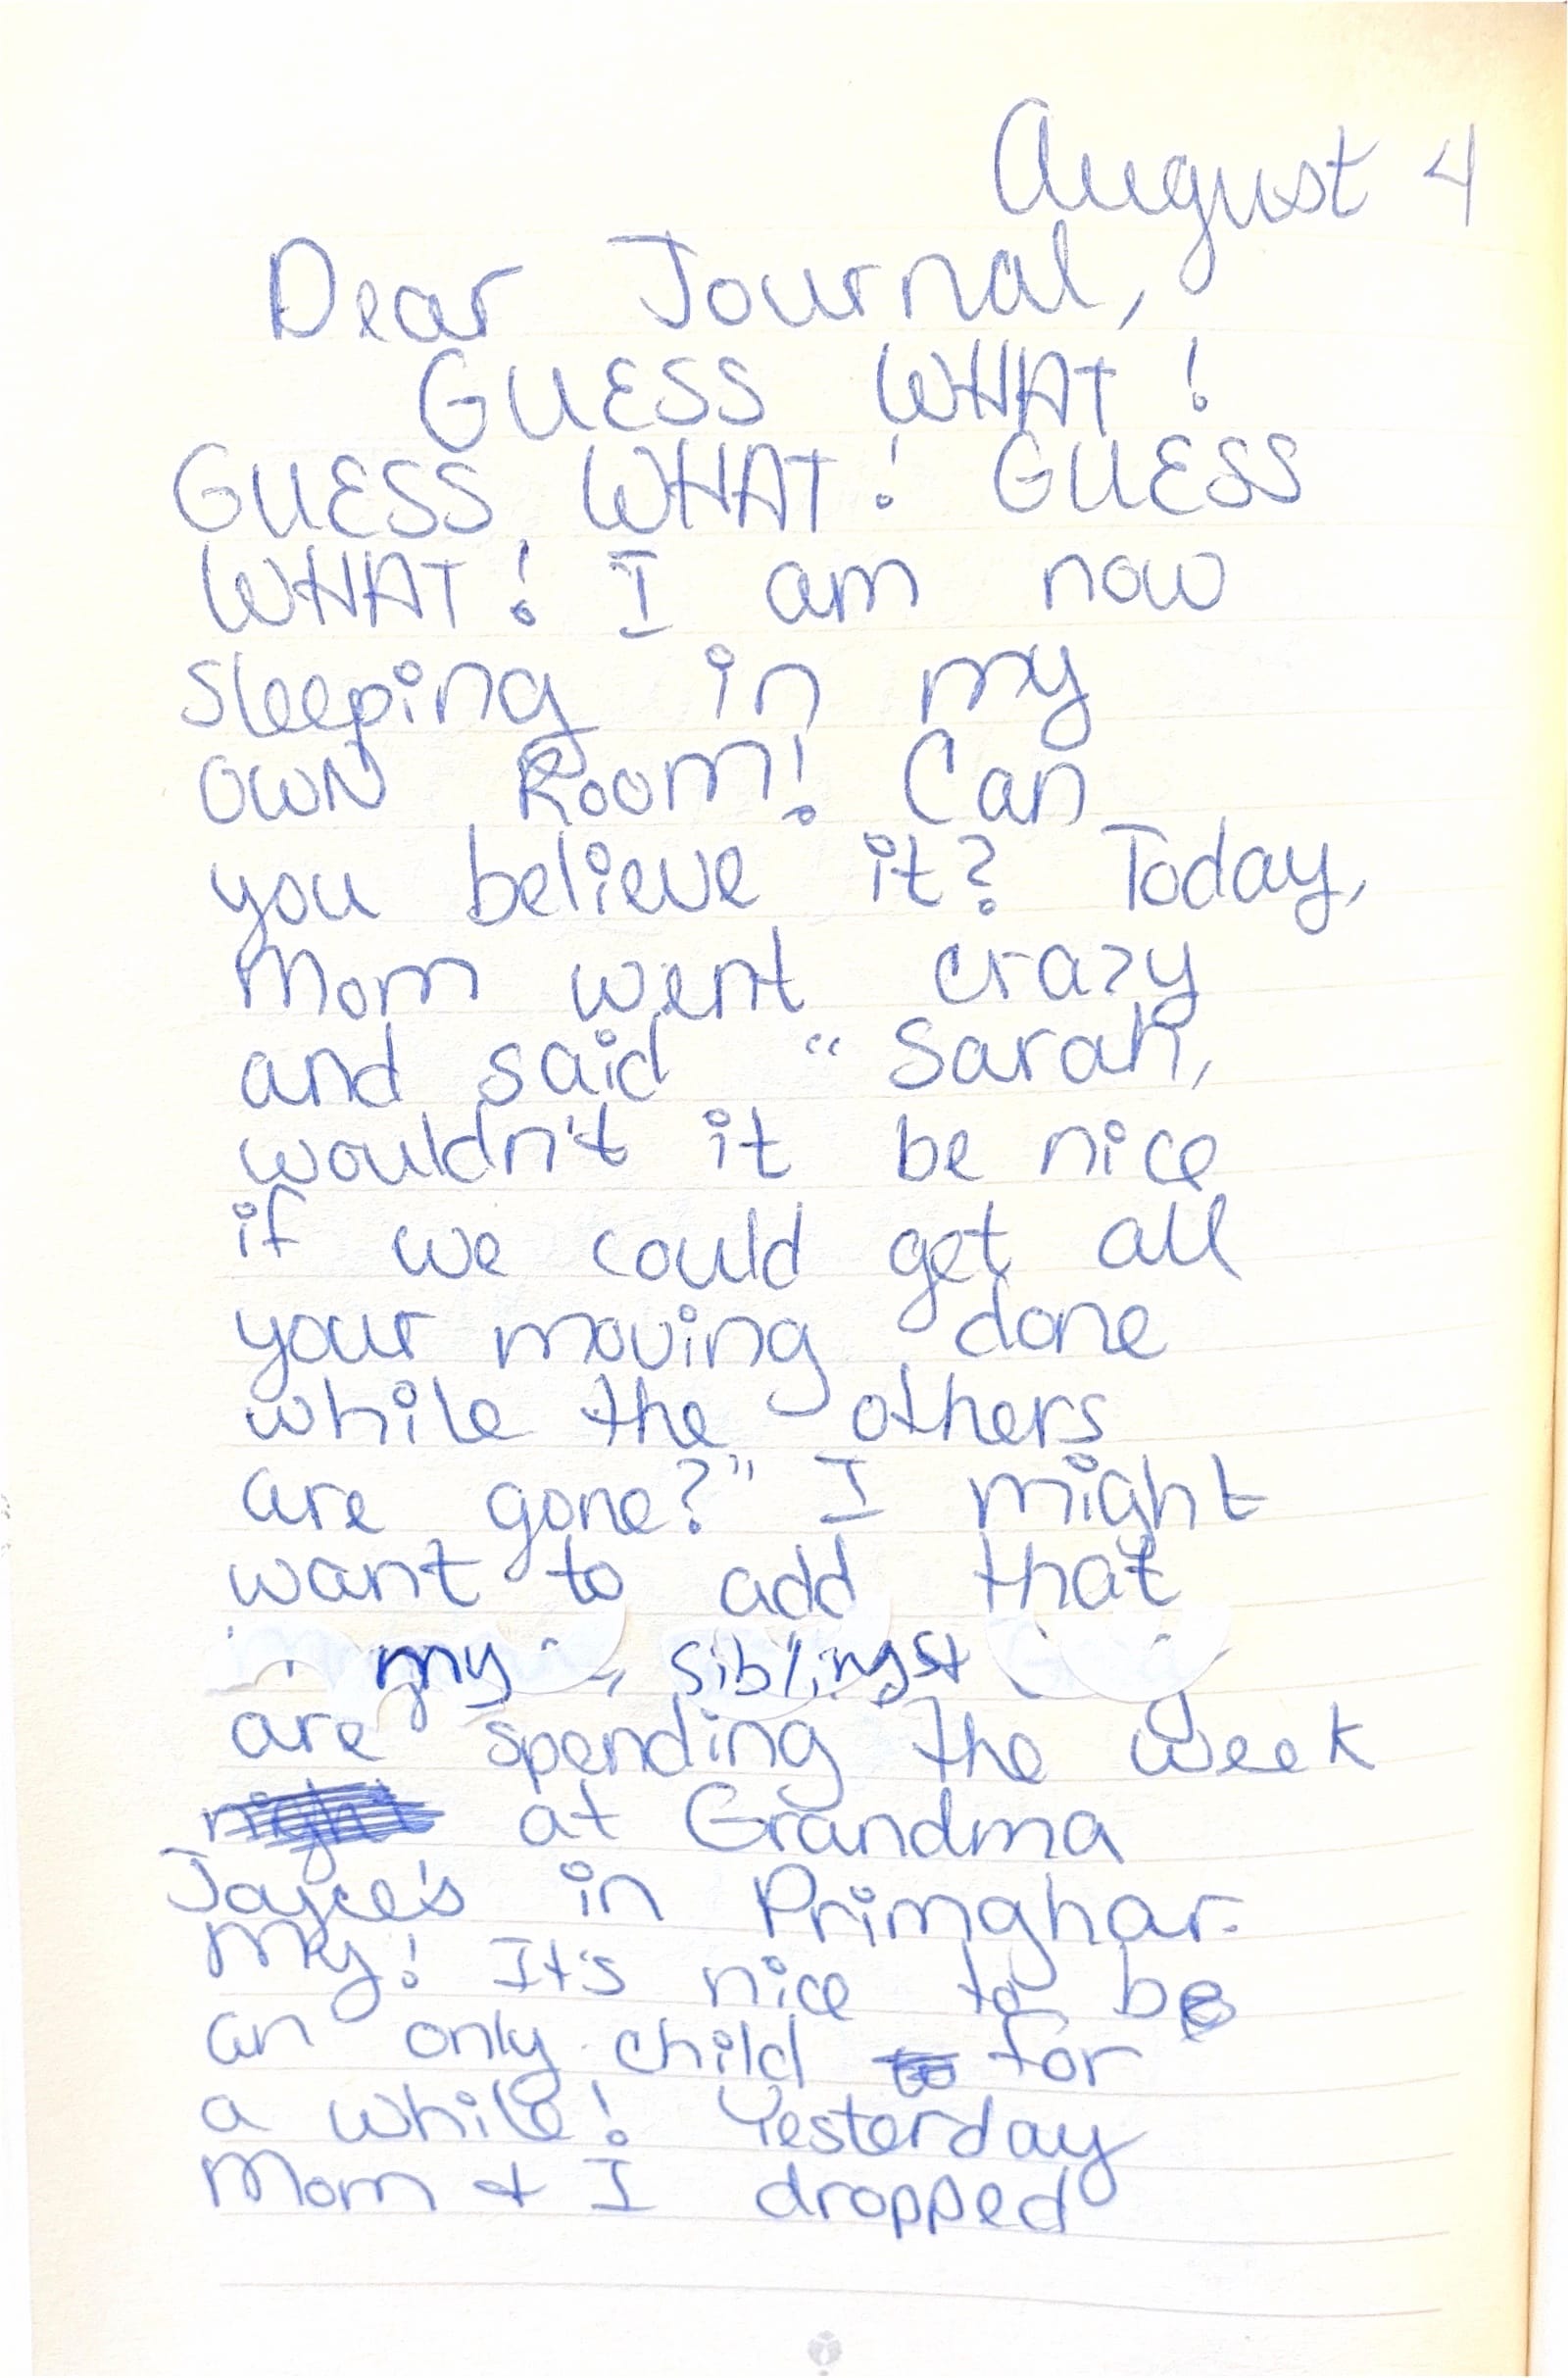 August 4
Dear Journal,
GUESS WHAT!
GUESS WHAT! GUESS
WHAT! I am now
sleeping in my
OWN Room! Can
you believe it? Today,
Mom went crazy
and said "Sarah,
wouldn't it be nice
if we could get all
your moving done
while the others
are gone?" I might
want to add that
my siblings
are spending the week
at Grandma
Joyce's in Primghar.
My! It's nice to be
an only child for
a while! Yesterday
Mom & I dropped